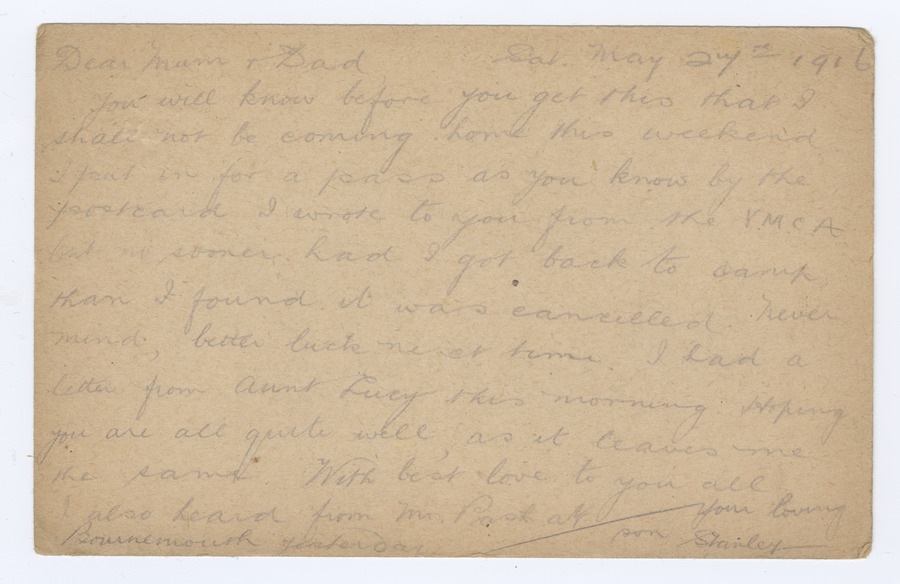 Dear Mum & Dad, Sat. May 27th 1916
You will know before you get this that I
shall not be coming home this weekend
I put in for a pass as you know by the
postcard I wrote to you from the Y.M.C.A
but no sooner had I got back to camp
than I found it was cancelled. Never
mind, better luck next time. I had a
letter from Aunt Lucy this morning Hoping
you are all quite well, as it leaves me
the same. With best love to you all
I also heard from Mr. at Your loving
Bournemouth yesterday son Stanley